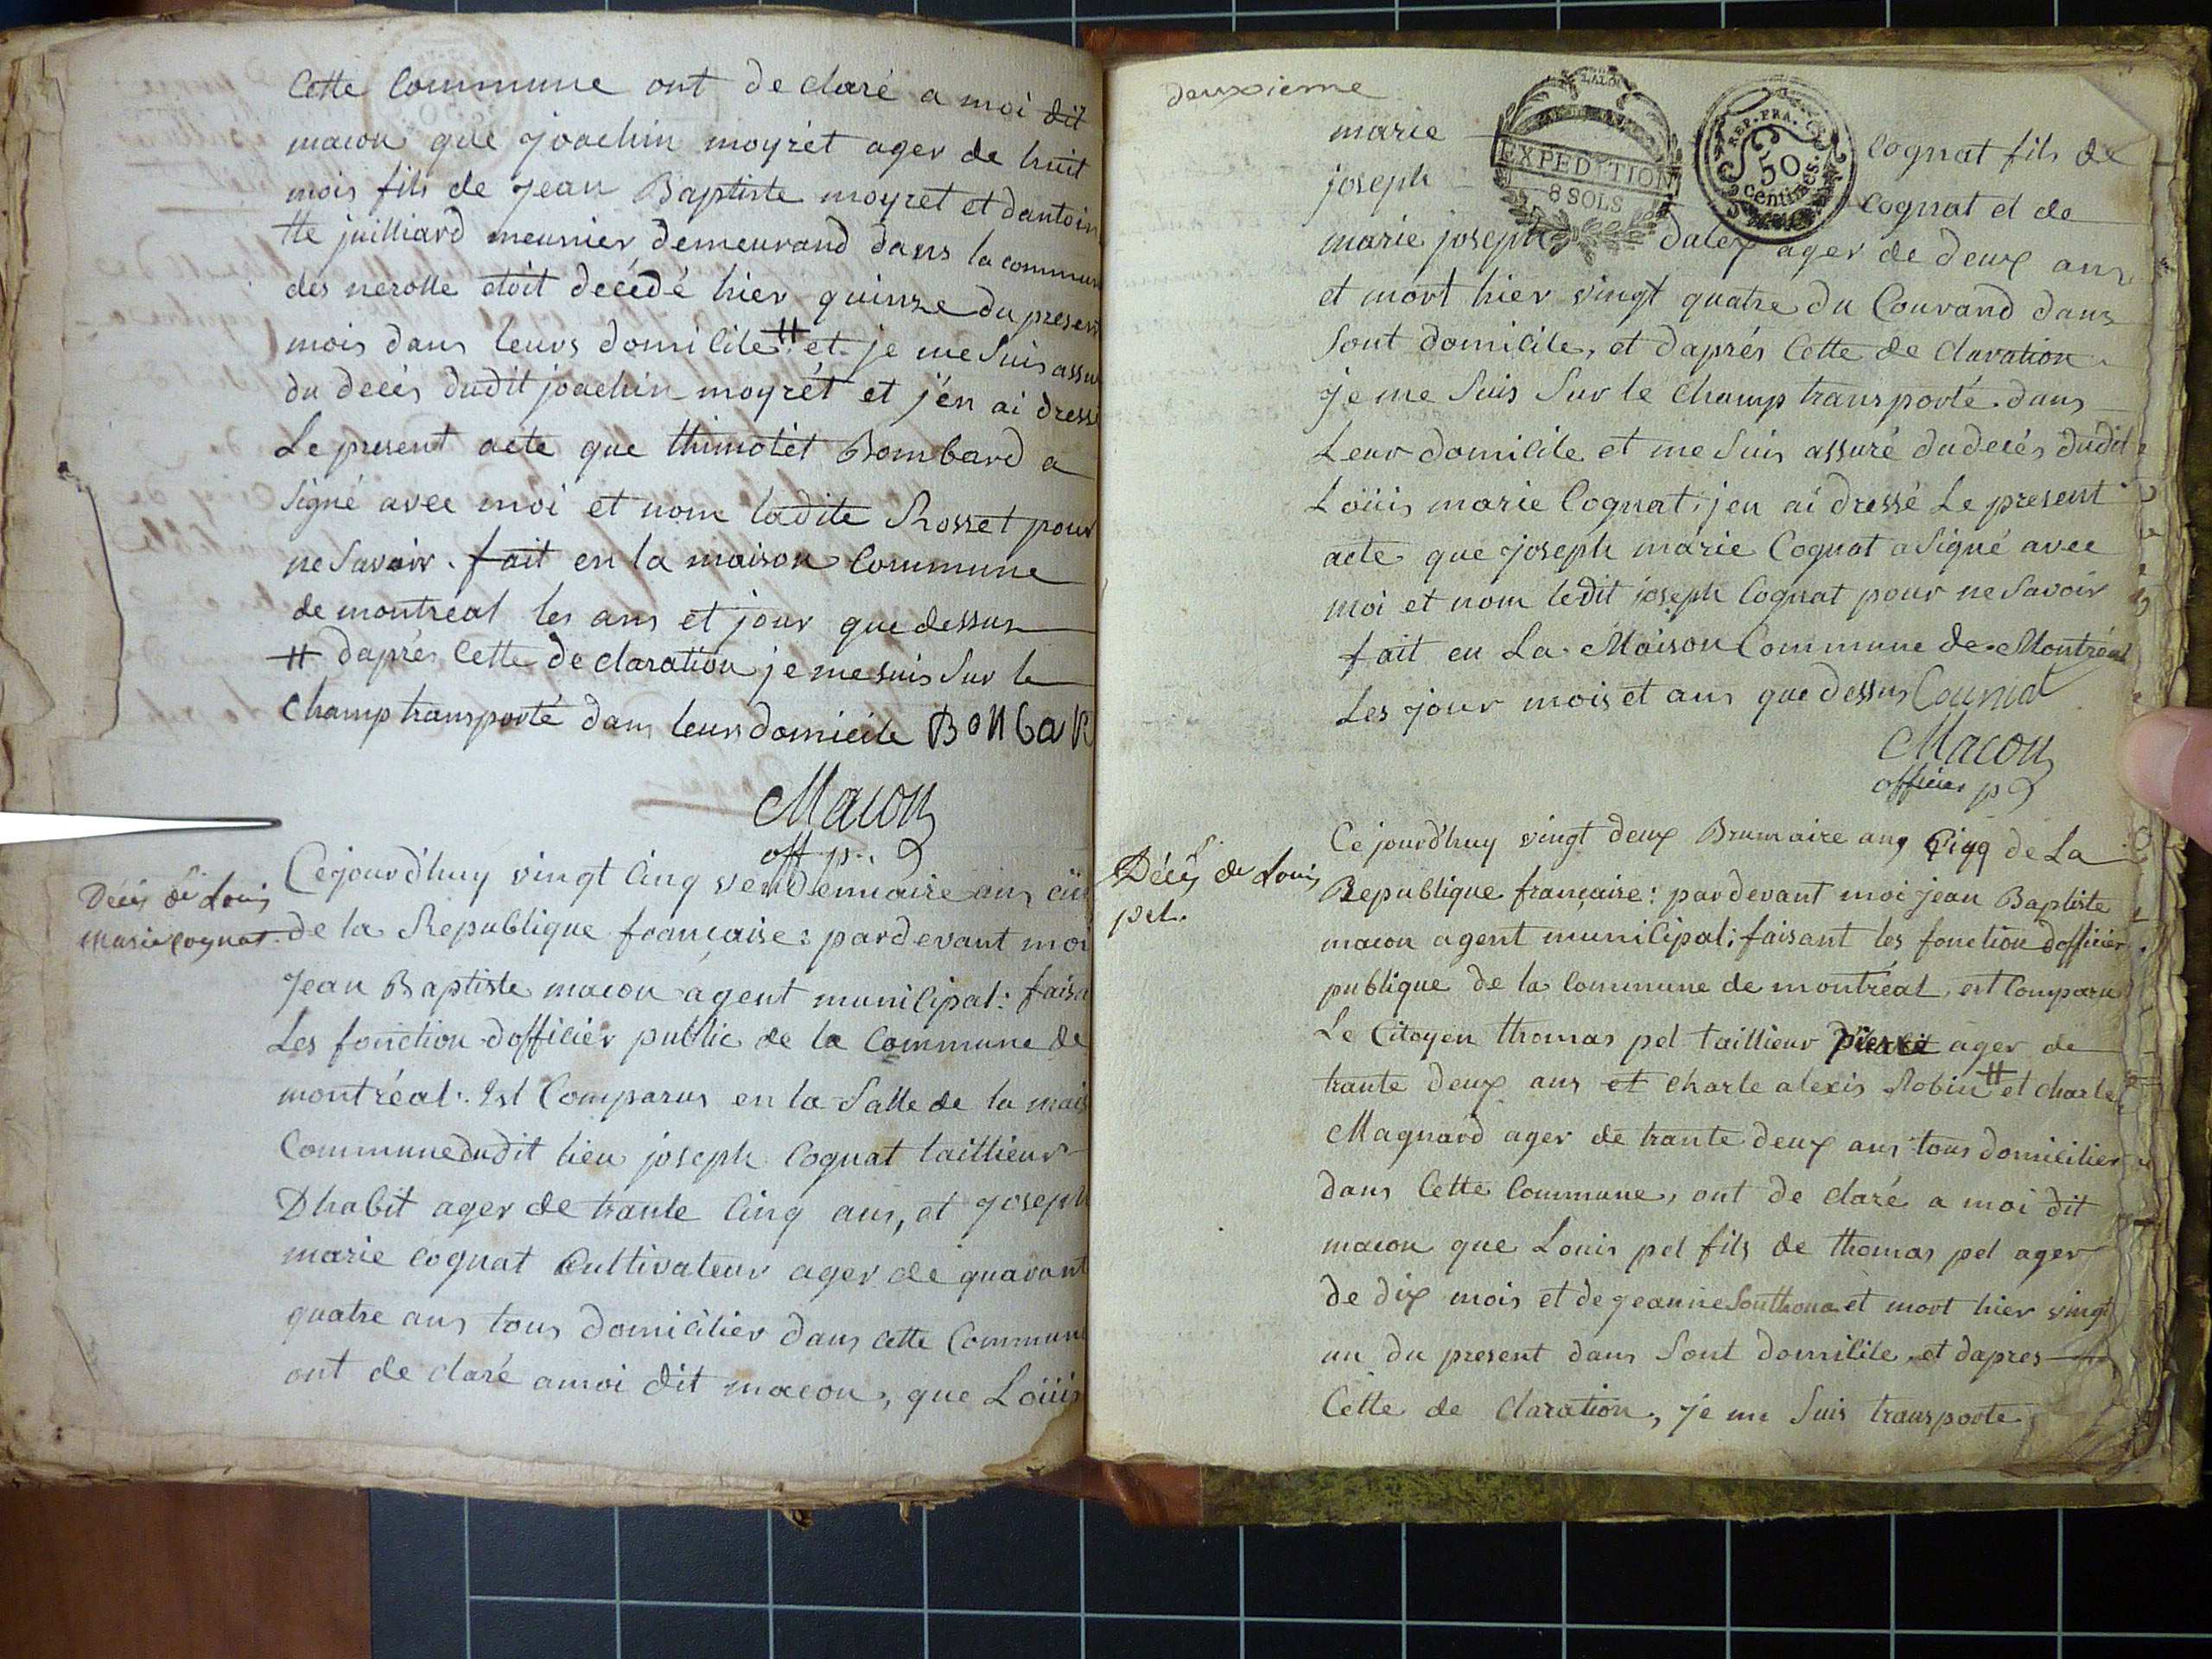 Cette Commune ont de claré a moi dit
macon que joachin moyrét ager de huit
mois fils de jean Baptiste moyret et dantoin
tte juilliard meunier demeurand dans la commun
des nerolle etoit decédé hier quinze du present
mois dans leurs domicile ⧺ et je me Suis assu
du decés dudit joachin moyrét et j'en ai dressé
Le present acte que thimotét Bombard a
Signé avec moi et nom ladite Rosset pour
ne Savoir. fait en la maison Commune
de montreal les ans et jour que dessus
⧺ daprés Cette de claration je me suis Sur le
Champ transporté dans leurs domicile BONbaR
Macon
off p.
Décés de Louis
Marie Cognat.
Cejourd'huy vingt Cinq vendemiaire ans cin
de la Republique francaise: pardevant moi
Jean Baptiste macon agent municipal: faisa
Les fonction dofficier public de la Commune de
montréal. Est Comparus en la Salle de la mais
Commune dudit lieu joseph Cognat taillieur
Dhabit ager de trante Cinq ans, et joseph
marie Cognat Cultivateur ager de quarant
quatre ans tous domicilier dans cette Commune
ont de claré amoi dit macon, que Loüis
deuxieme
LA LOI
EXPEDITION
8 SOLS
REP. FRA.
50
Centimes.
marie Cognat fils de
joseph Cognat et de
marie joseph dalex ager de deux ans
et mort hier vingt quatre du Courand dans
Sont domicile, et daprés Cette de claration
je me Suis Sur le Champ transporté dans
Leur domicile et me Suis assuré du decés dudit
Loüis marie Cognat; jen ai dressé Le present
acte que joseph marie Cognat a Signé avec
moi et nom ledit joseph Cognat pour ne Savoir
fait en La Maison Commune de Montréal
Les jour mois et ans que dessus Couniat
Macon
officier p
Décés de Louis
pel.
Ce jourd'huy vingt deux Brumaire ans Cinq de La
Republique française: par devant moi jean Baptiste
macon agent municipal; faisant les fonction dofficier
publique de la Commune de montréal, est Comparu
Le Citoyen thomas pel taillieur ager de
trante deux ans et charle alexis Robin ⧺ et charle
Magnard ager de trante deux ans tous domicilier
dans Cette Commune, ont de claré a moi dit
macon que Louis pel fils de thomas pel ager
de dix mois et de jeanne Southona et mort hier vingt
un du present dans Sont domicile, et dapres
Cette de claration, je me Suis transporte